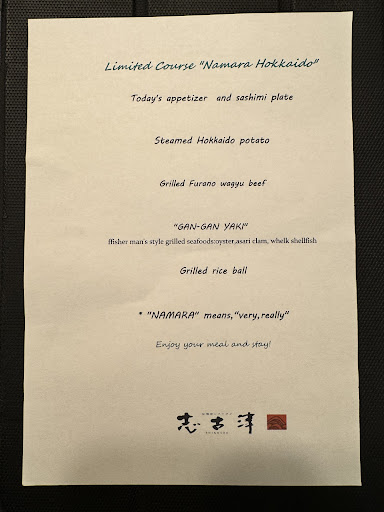 Limited Course "Namara Hokkaido"
Today's appetizer and sashimi plate
Steamed Hokkaido potato
Grilled Furano wagyu beef
"GAN-GAN YAKI"
ffisher man's style grilled seafoods:oyster,asari clam, whelk shellfish
Grilled rice ball
* "NAMARA" means,"very,really"
Enjoy your meal and stay!
志古津